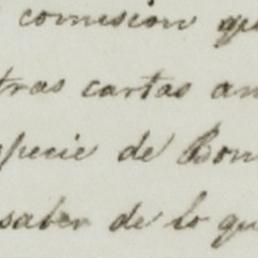 comision qu
tras cartas an
specie de Bon
saber de lo qu